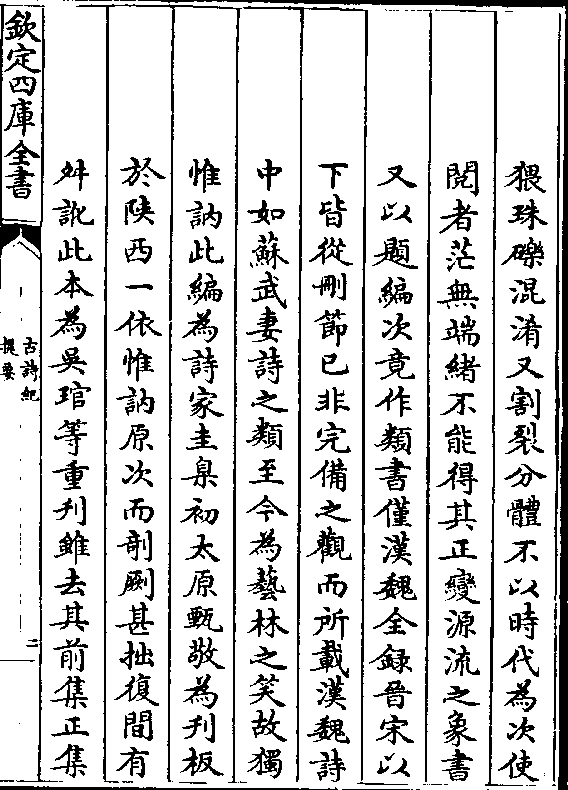 猥珠礫混淆又割裂分體不以時代為次使
閱者茫無端緒不能得其正變源流之象書
又以題編次竟作類書僅漢魏全録晉宋以
下皆從刪節已非完備之觀而所載漢魏詩
中如蘇武妻詩之類至今為藝林之笑故獨
惟訥此編為詩家圭臬初太原甄敬為刋板
於陜西一依惟訥原次而剞劂甚拙復間有
舛訛此本為吳琯等重刋雖去其前集正集
欽定四庫全書
古詩紀
提要
二